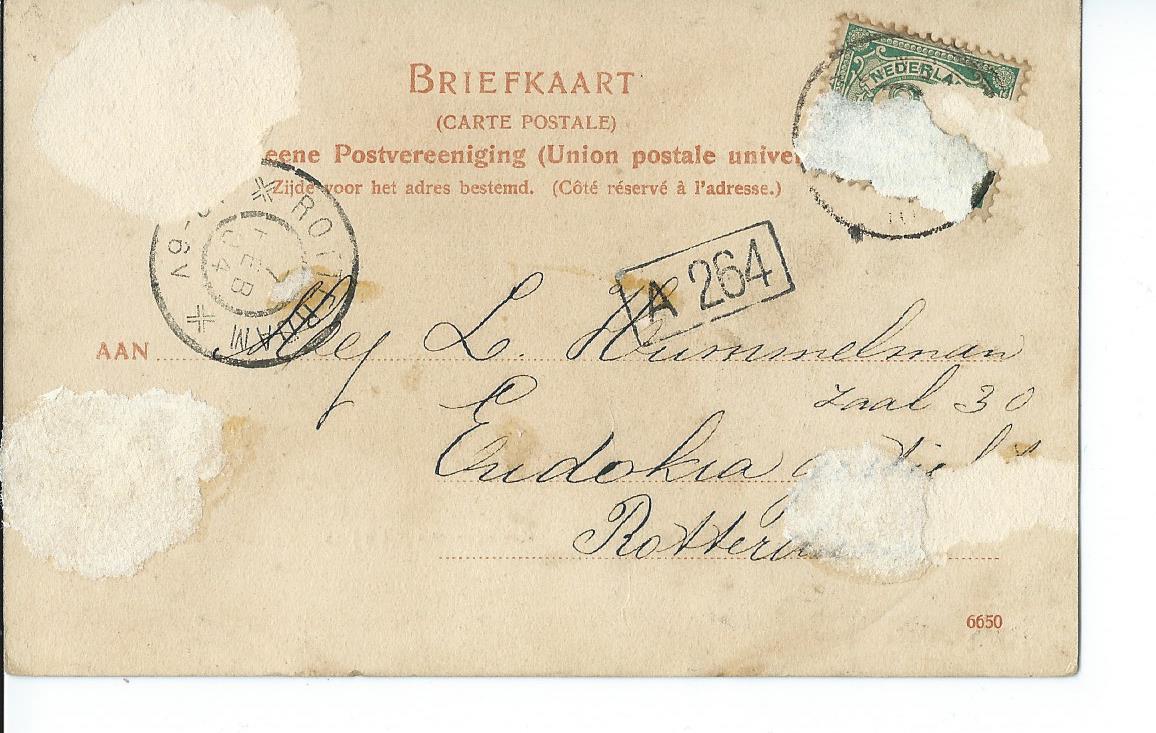 BRIEFKAART
(CARTE POSTALE)
eene Postvereeniging (Union postale univer
Zijde voor het adres bestemd. (Côté réservé à l'adresse.)
NEDERLA
ROTTERDAM
FEB
04
6V
A 264
AAN
L. Hummelman
zaal 30
Eudokia
Rotter
6650